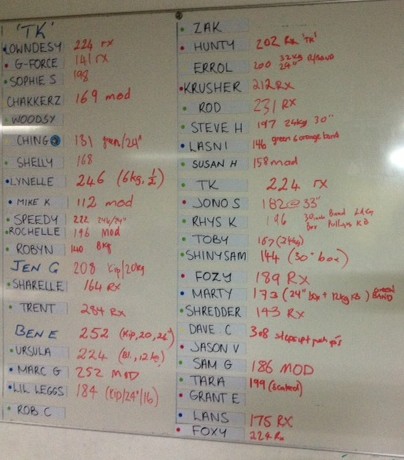 'TK'
LOWNDESY 224 rx
G-FORCE 141 rx
SOPHIE S 198
CHARKERZ 169 mod
WOODSY
CHING 181 green/24"
SHELLY 168
LYNELLE 246 (6kg, ½)
MIKE K 112 mod
SPEEDY 222
ROCHELLE 196 mod
ROBYN 140 8kg
JEN G 208 Kip/20kg
SHARELLE 164 RX
TRENT 284 RX
BEN E 252 (Kip, 20, 24")
URSULA 224 (Bl, 12kg)
MARC G 252 MOD
LIL LEGGS 184 (Kip/24"/16)
ROB C
ZAK
HUNTY 202 Rx 'TK'
ERROL 200 32kg 24"
KRUSHER 212 RX
ROD 231 RX
STEVE H 197 24kg 30"
LASNI 146 green & orange band
SUSAN H 158 mod
TK 224 rx
JONO S 182 @ 33"
RHYS K 196 Band KB
TOBY 167 (24kg)
SHINYSAM 144 (30" box)
FOZY 189 RX
MARTY 173 (24" Box + 12kg KB) BAND
SHREDDER 193 RX
DAVE C 308 step ups push ups
JASON V
SAM G 186 MOD
TARA 199 (scaled)
GRANT E
LANS 175 RX
FOXY 224 Rx